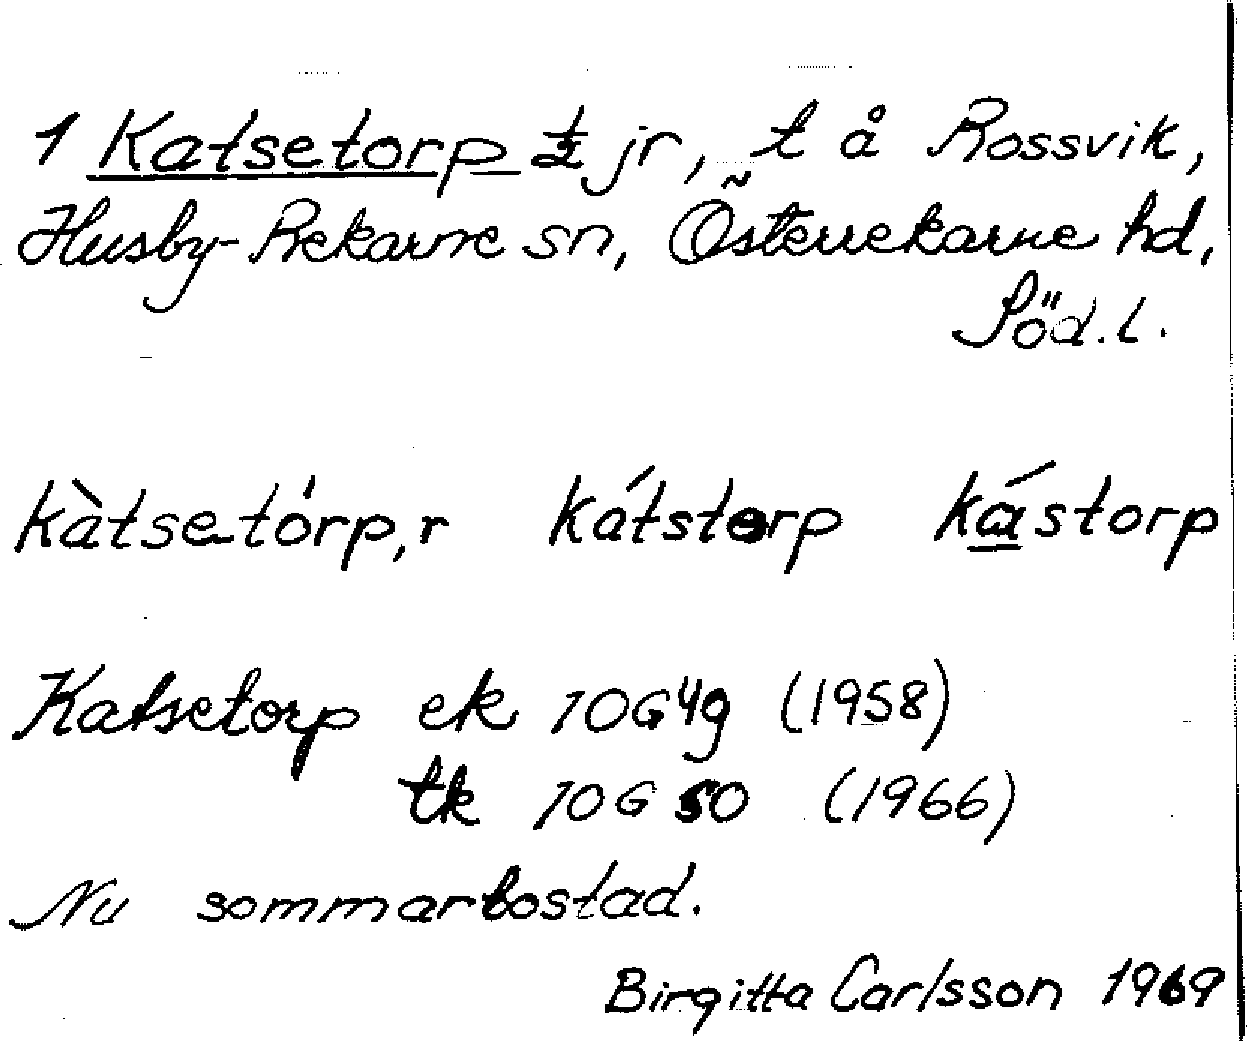 1 Katsetorp ½ jr, t å Rossvik,
Husby-Rekarne sn, Österrekarne hd,
Söd.l.
kàtsetòrp,r kátstorp kástorp
Katsetorp ek 10G4g (1958)
tk 10G50 (1966)
Nu sommarbostad.
Birgitta Carlsson 1969